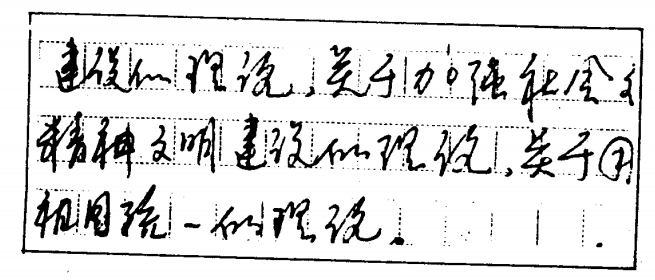 建设的理论、关于加强社会主
精神文明建设的理论、关于
祖国统一的理论。